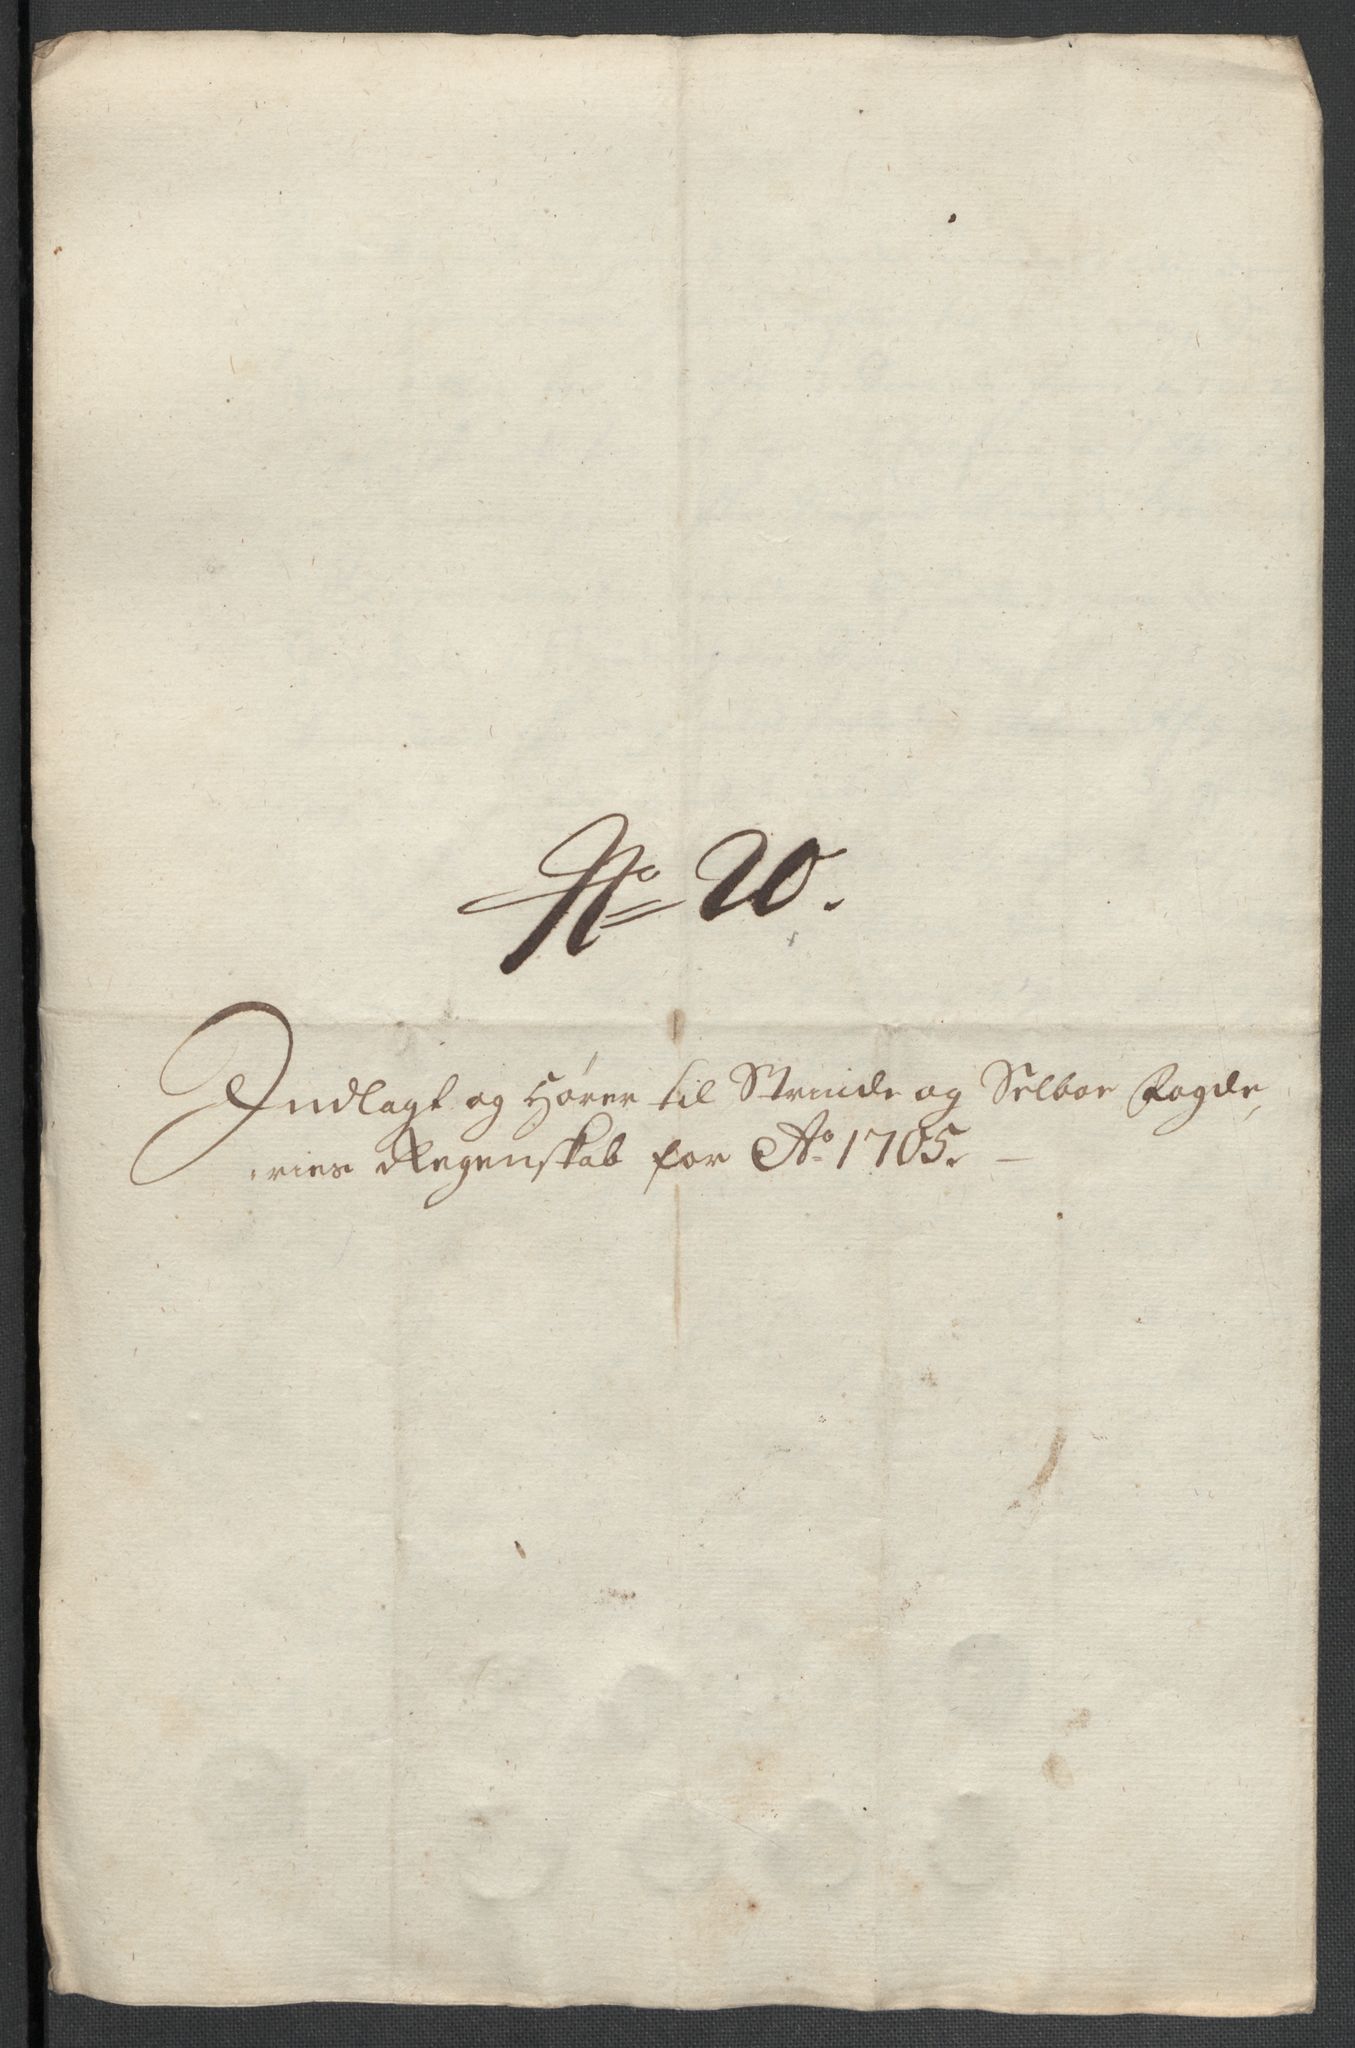 No 20.
Indlagt og Hører til Strinde og Selboe Fogde,
ries Regenskab for Ao 1705.